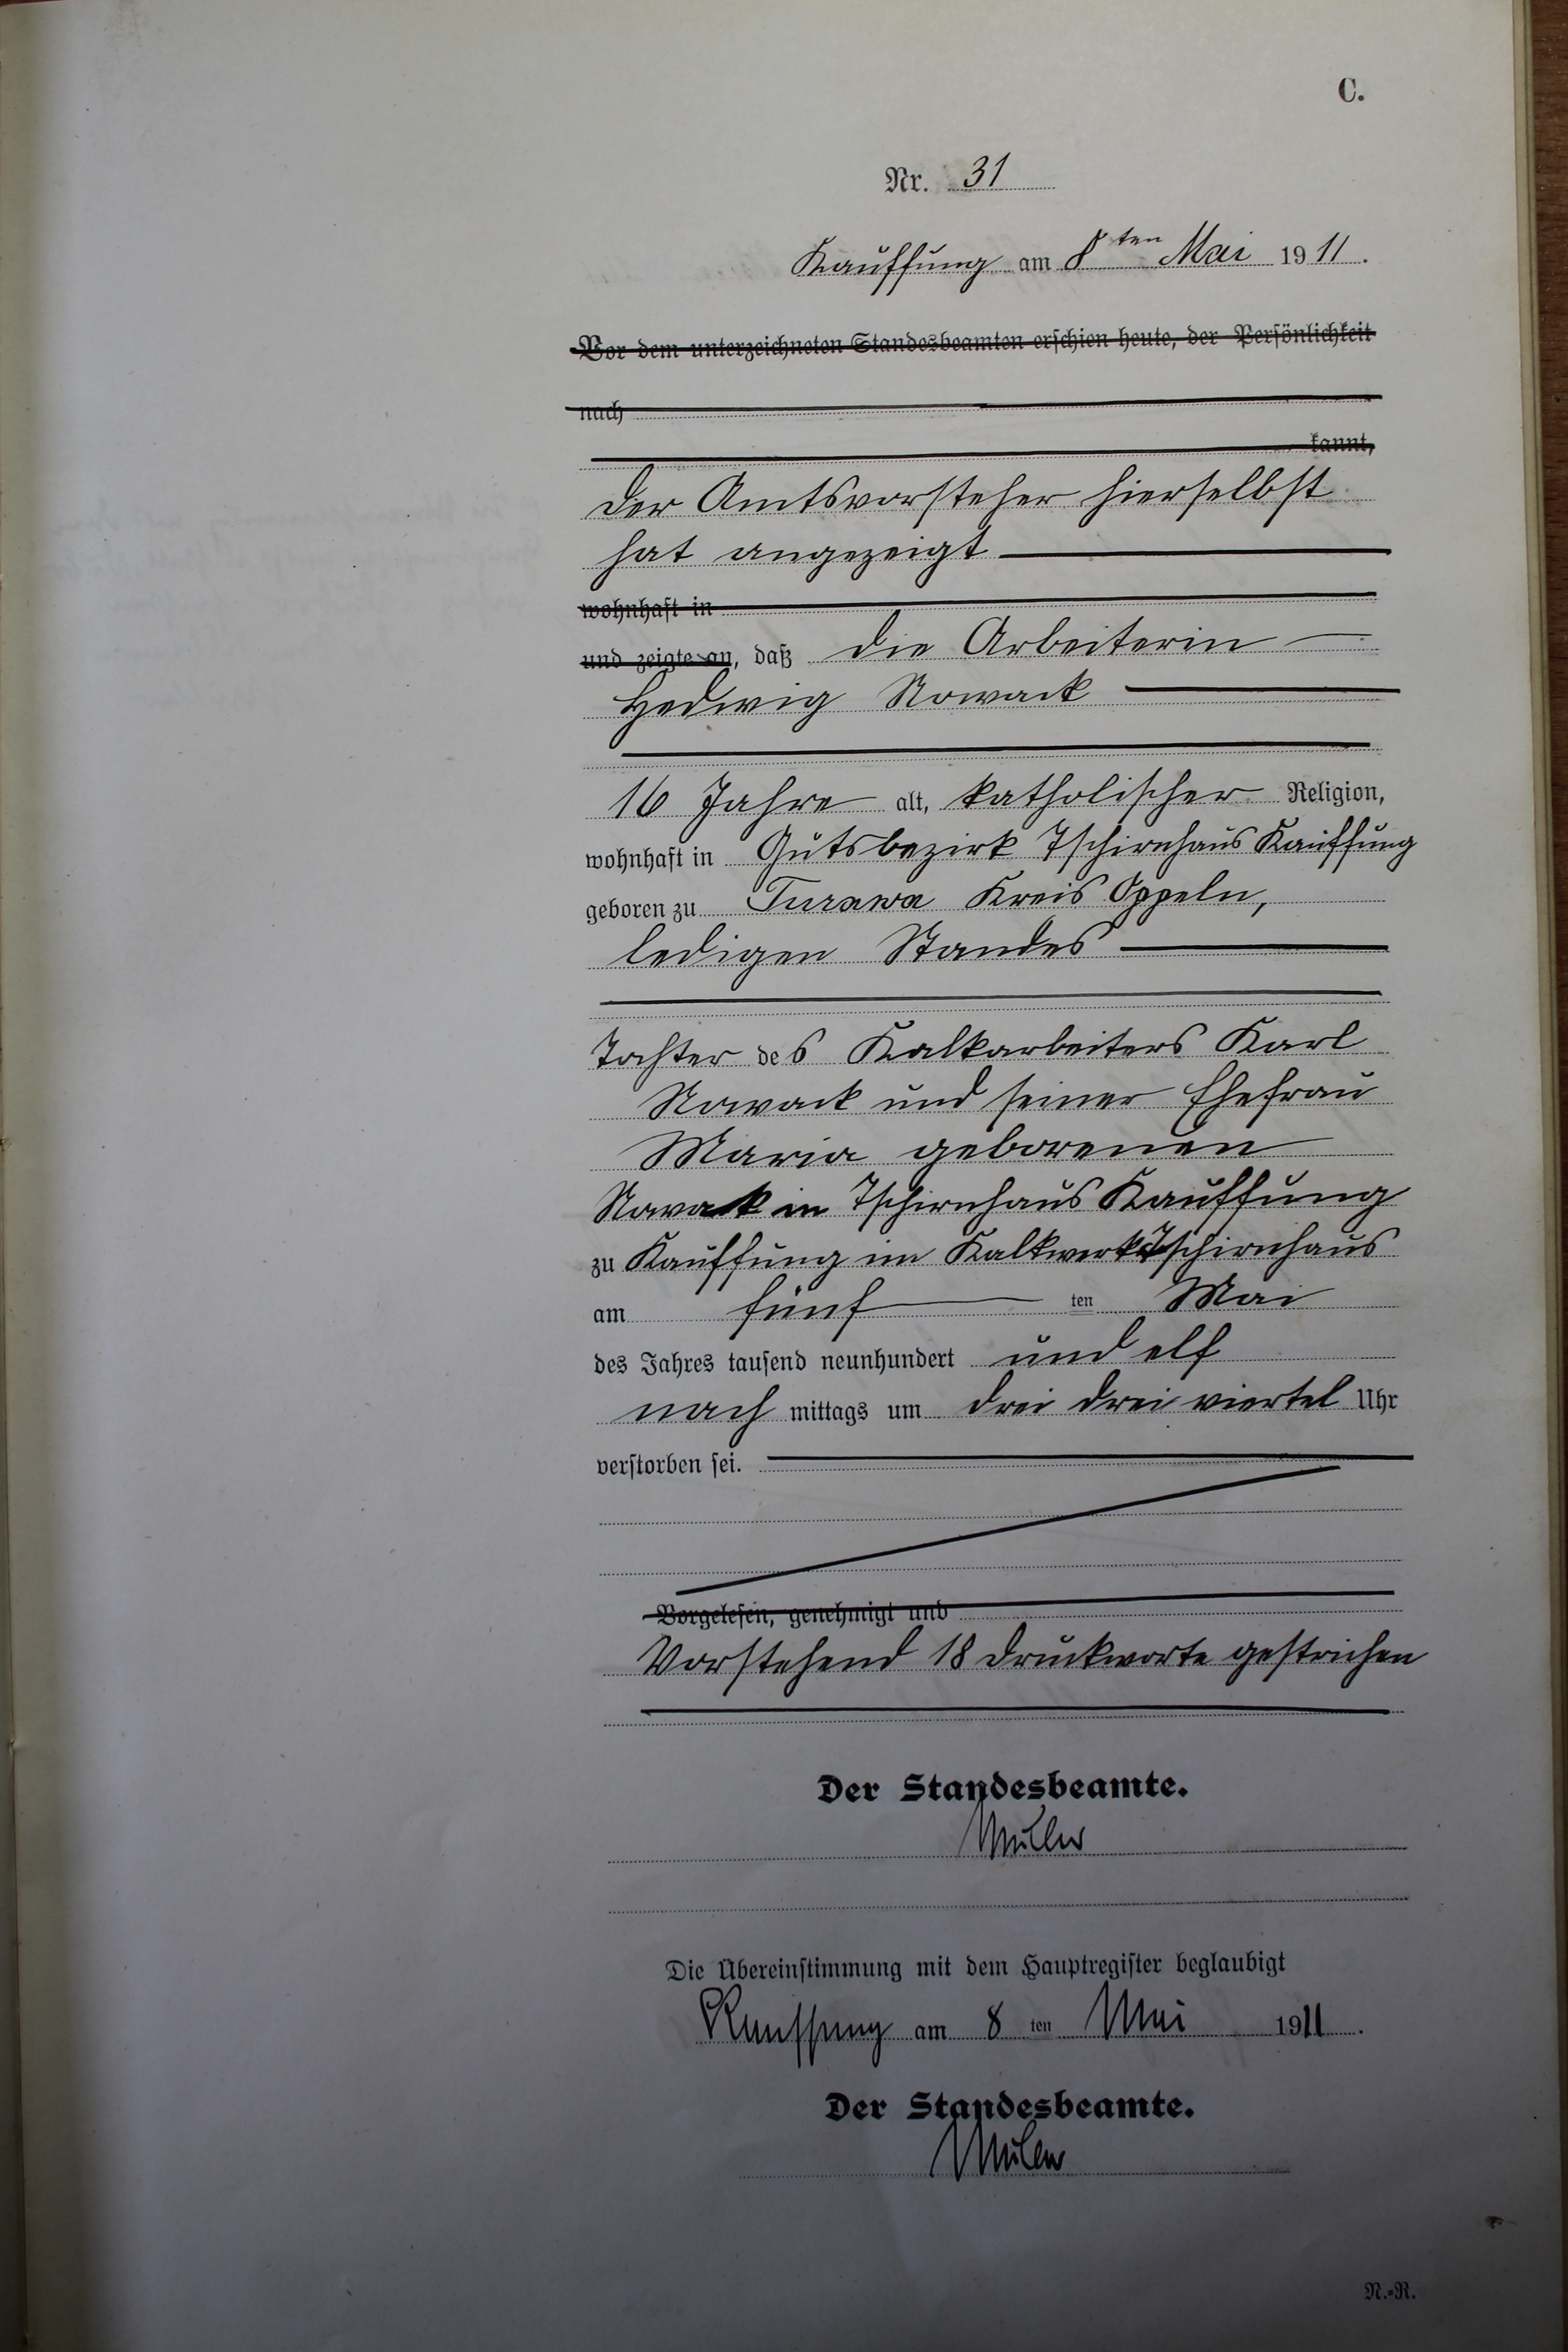 C.
Nr. 31
Kauffung am 8ten Mai 1911.
Vor dem unterzeichneten Standesbeamten erschien heute, der Persönlichkeit
nach
kannt,
der Amtsvorsteher hierselbst
hat angezeigt
wohnhaft in
und zeigte an, daß die Arbeiterin
Hedwig Nowack
16 Jahre alt, katholischer Religion,
wohnhaft in Gutsbezirk Tschirnhaus Kauffung
geboren zu Turawa Kreis Oppeln,
ledigen Standes
Tochter des Kalkarbeiters Karl
Nowack und seiner Ehefrau
Maria geborenen
Nowak in Tschirnhaus Kauffung
zu Kauffung im Kalkwerk Tschirnhaus
am fünf ten Mai
des Jahres tausend neunhundert und elf
nach mittags um drei drei viertel Uhr
verstorben sei.
Vorgelesen, genehmigt und
Vorstehend 18 Druckworte gestrichen
Der Standesbeamte.
Müller
Die Übereinstimmung mit dem Hauptregister beglaubigt
Kauffung am 8 ten Mai 1911.
Der Standesbeamte.
Müller
N.-R.